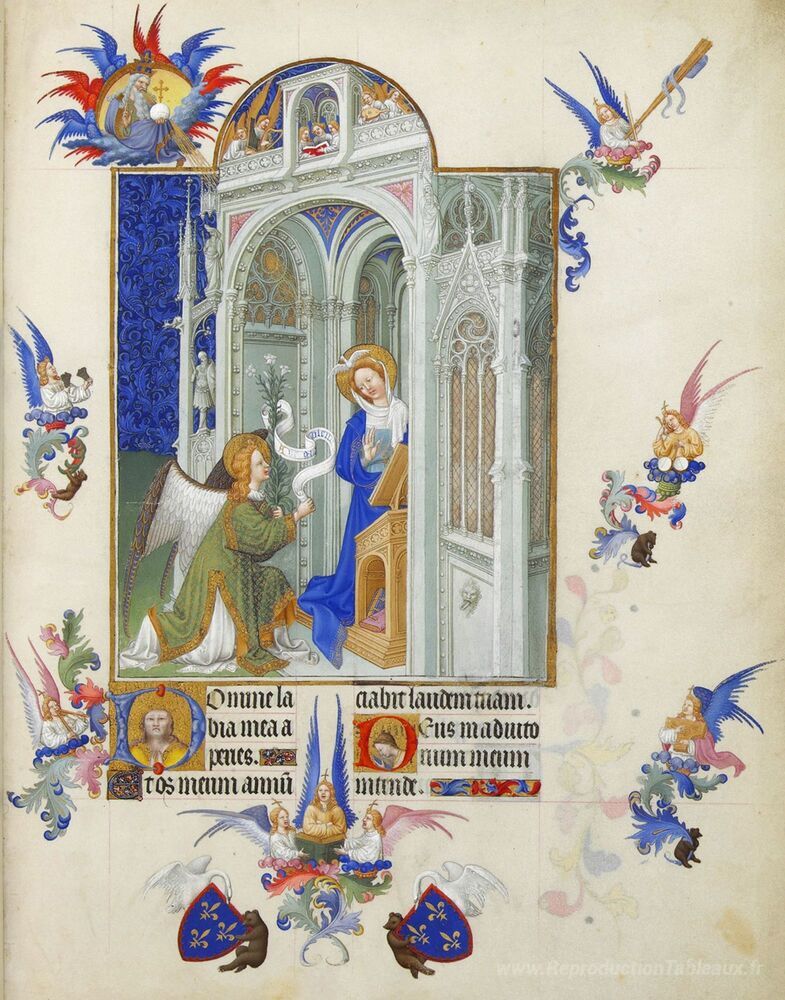 Domine la
bia mea a
peries.
Et os meum annū
ciabit laudem tuam.
Deus in adiuto
rium meum
intende.
www.ReproductionTableaux.fr